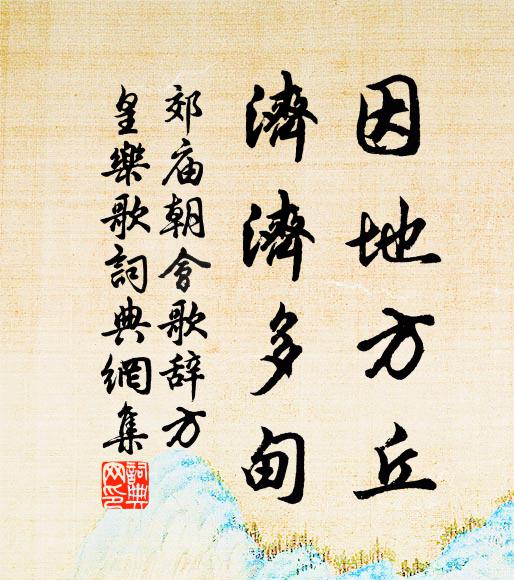 因地方丘
濟濟多甸
郊庙朝會歌辞方
皇樂歌詞典網集
詞典網印